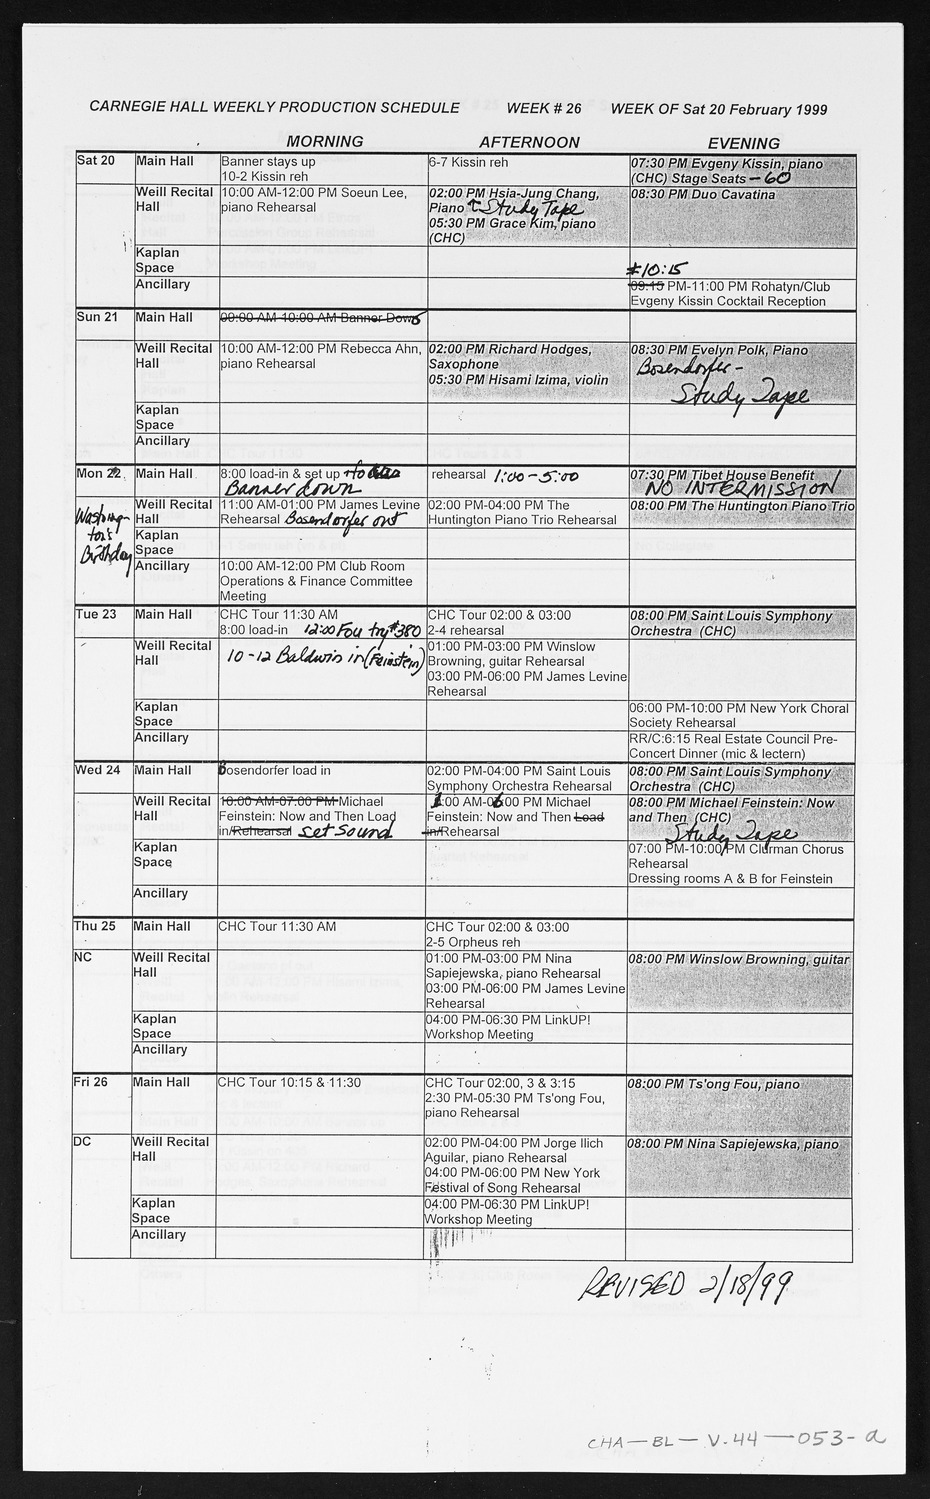 CARNEGIE HALL WEEKLY PRODUCTION SCHEDULE WEEK # 26 WEEK OF Sat 20 February 1999
MORNING AFTERNOON EVENING
Sat 20 Main Hall
Banner stays up
10-2 Kissin reh
6-7 Kissin reh
07:30 PM Evgeny Kissin, piano
(CHC) Stage Seats – 60
Weill Recital
Hall
10:00 AM-12:00 PM Soeun Lee,
piano Rehearsal
02:00 PM Hsia-Jung Chang,
Piano Study Tape
05:30 PM Grace Kim, piano
(CHC)
08:30 PM Duo Cavatina
Kaplan
Space
Ancillary
10:15
09:15 PM-11:00 PM Rohatyn/Club
Evgeny Kissin Cocktail Reception
Sun 21 Main Hall
09:00 AM-10:00 AM Banner Down
Weill Recital
Hall
10:00 AM-12:00 PM Rebecca Ahn,
piano Rehearsal
02:00 PM Richard Hodges,
Saxophone
05:30 PM Hisami Izima, violin
08:30 PM Evelyn Polk, Piano
Bosendorfer -
Study Tape
Kaplan
Space
Ancillary
Mon 22 Main Hall
8:00 load-in & set up
Banner down
rehearsal 1:00-5:00
07:30 PM Tibet House Benefit
NO INTERMISSION
Washing-
ton's
Birthday
Weill Recital
Hall
11:00 AM-01:00 PM James Levine
Rehearsal Bosendorfer out
02:00 PM-04:00 PM The
Huntington Piano Trio Rehearsal
08:00 PM The Huntington Piano Trio
Kaplan
Space
Ancillary
10:00 AM-12:00 PM Club Room
Operations & Finance Committee
Meeting
Tue 23 Main Hall
CHC Tour 11:30 AM
8:00 load-in 12:00 Fou try #380
CHC Tour 02:00 & 03:00
2-4 rehearsal
08:00 PM Saint Louis Symphony
Orchestra (CHC)
Weill Recital
Hall
10-12 Baldwin in (Feinstein)
01:00 PM-03:00 PM Winslow
Browning, guitar Rehearsal
03:00 PM-06:00 PM James Levine
Rehearsal
Kaplan
Space
06:00 PM-10:00 PM New York Choral
Society Rehearsal
Ancillary
RR/C:6:15 Real Estate Council Pre-
Concert Dinner (mic & lectern)
Wed 24 Main Hall
Bosendorfer load in
02:00 PM-04:00 PM Saint Louis
Symphony Orchestra Rehearsal
08:00 PM Saint Louis Symphony
Orchestra (CHC)
Weill Recital
Hall
10:00 AM-07:00 PM Michael
Feinstein: Now and Then Load
in/Rehearsal set Sound
1:00 AM-06:00 PM Michael
Feinstein: Now and Then Load
in/Rehearsal
08:00 PM Michael Feinstein: Now
and Then (CHC)
Study Tape
Kaplan
Space
07:00 PM-10:00 PM Clurman Chorus
Rehearsal
Dressing rooms A & B for Feinstein
Ancillary
Thu 25 Main Hall
CHC Tour 11:30 AM
CHC Tour 02:00 & 03:00
2-5 Orpheus reh
NC Weill Recital
Hall
01:00 PM-03:00 PM Nina
Sapiejewska, piano Rehearsal
03:00 PM-06:00 PM James Levine
Rehearsal
08:00 PM Winslow Browning, guitar
Kaplan
Space
04:00 PM-06:30 PM LinkUP!
Workshop Meeting
Ancillary
Fri 26 Main Hall
CHC Tour 10:15 & 11:30
CHC Tour 02:00, 3 & 3:15
2:30 PM-05:30 PM Ts'ong Fou,
piano Rehearsal
08:00 PM Ts'ong Fou, piano
DC Weill Recital
Hall
02:00 PM-04:00 PM Jorge Ilich
Aguilar, piano Rehearsal
04:00 PM-06:00 PM New York
Festival of Song Rehearsal
08:00 PM Nina Sapiejewska, piano
Kaplan
Space
04:00 PM-06:30 PM LinkUP!
Workshop Meeting
Ancillary
REVISED 2/18/99
CHA-BL-V.44-053-a